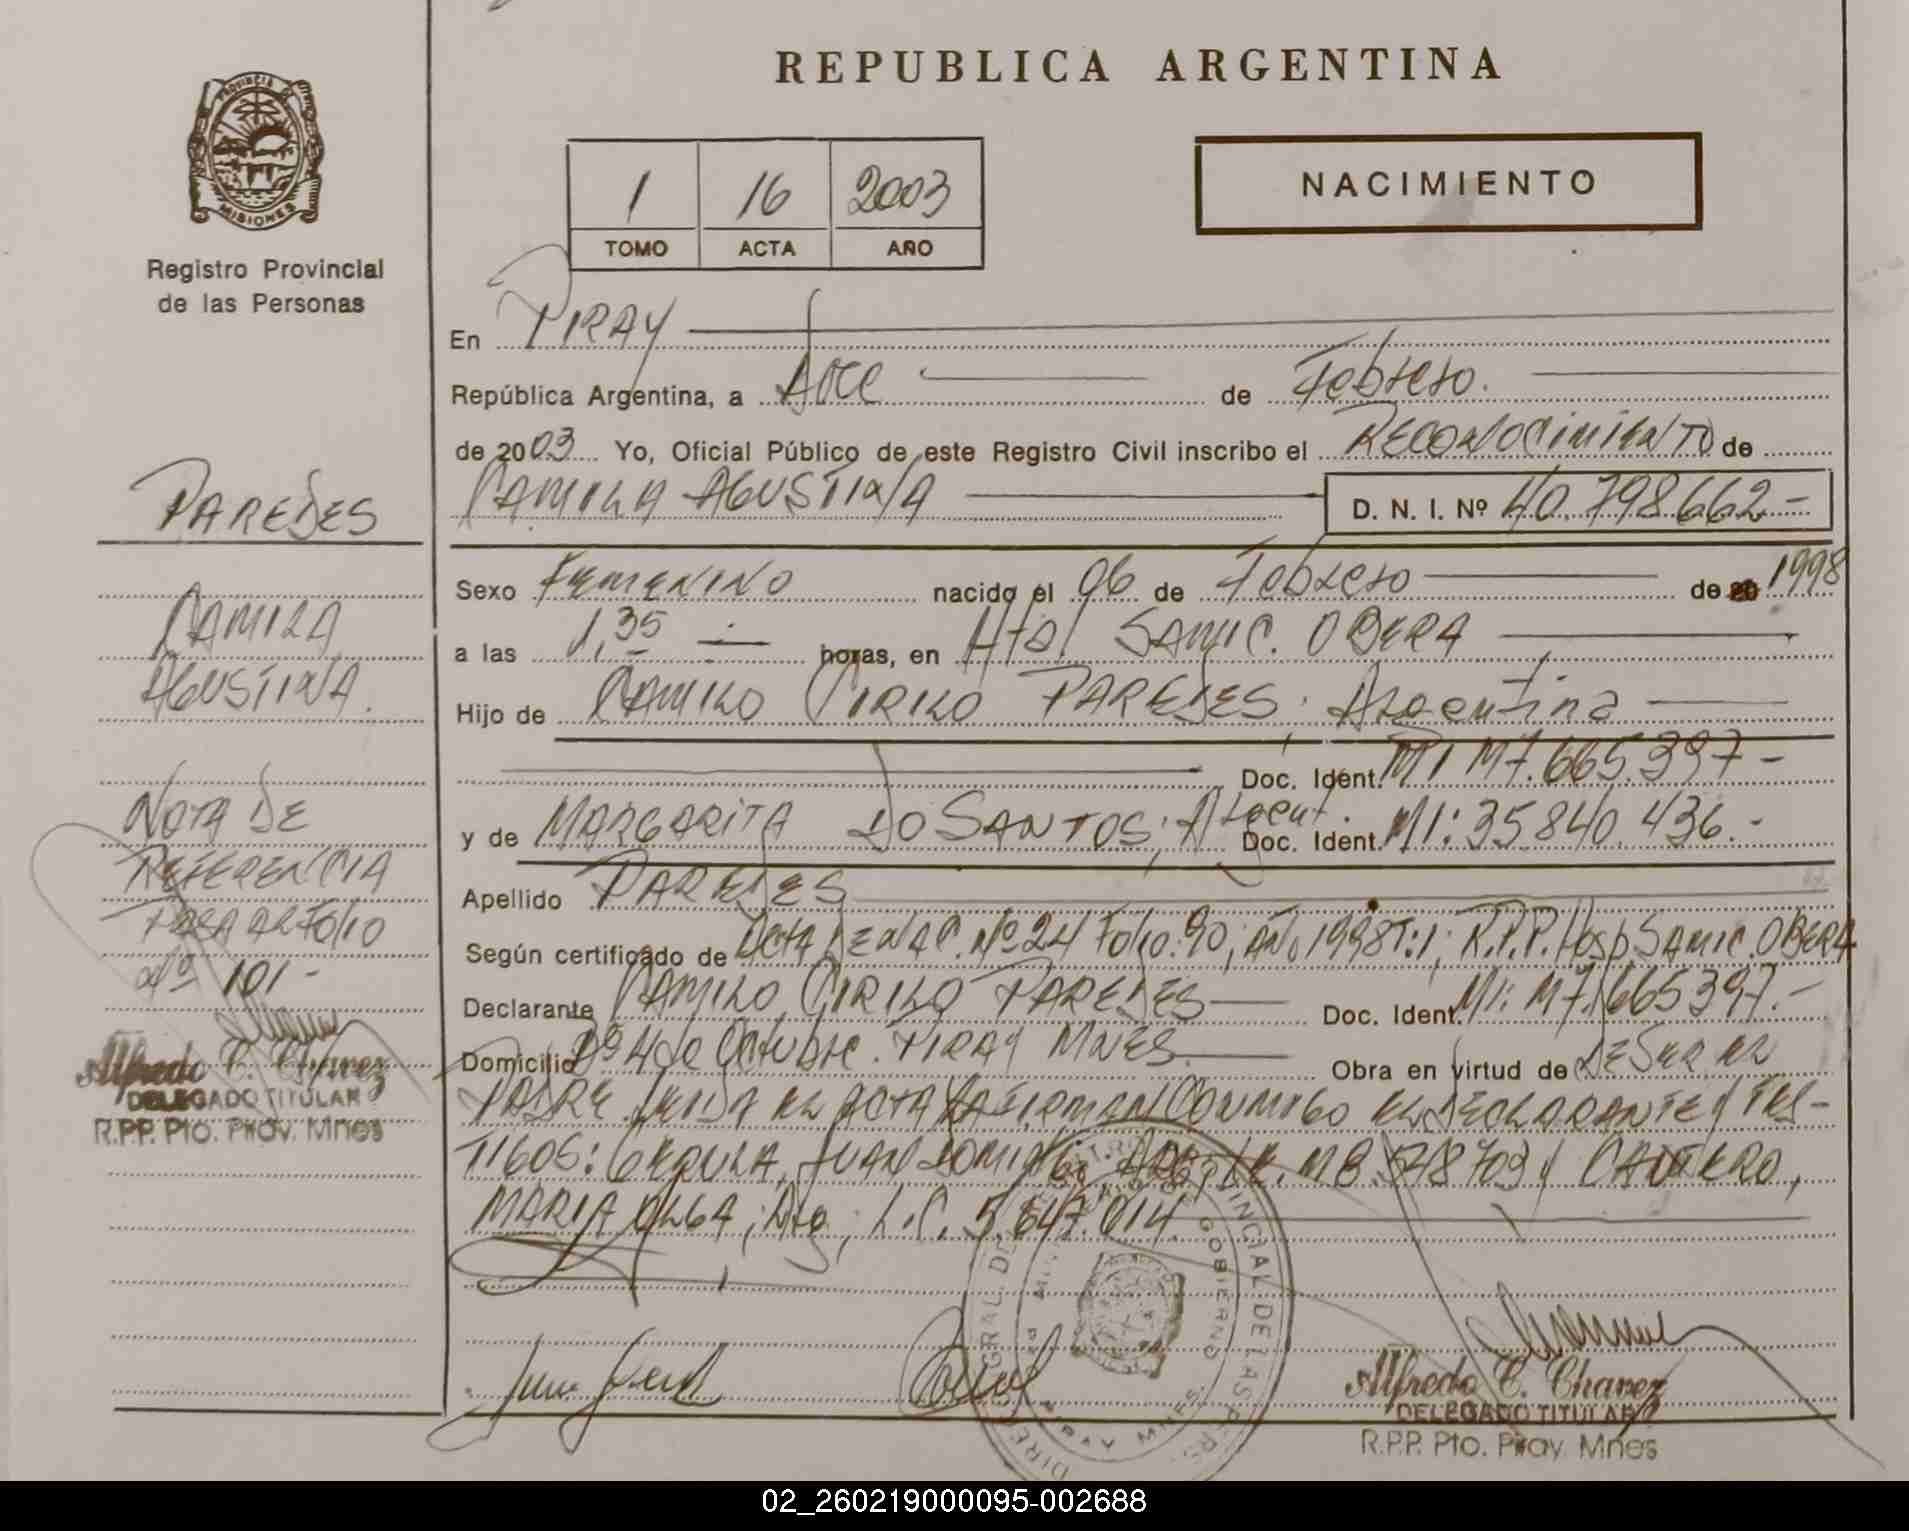 REPUBLICA ARGENTINA
PROVINCIA DE
MISIONES
Registro Provincial
de las Personas
1 16 2003
TOMO ACTA AÑO
NACIMIENTO
En PIRAY
República Argentina, a doce de Febrero.
de 2003 Yo, Oficial Público de este Registro Civil inscribo el RECONOCIMIENTO de
CAMILA AGUSTINA D. N. I. Nº 40.798662-
PAREDES
CAMILA
AGUSTINA.
NOTA DE
REFERENCIA
PASA AL Folio
Nº 101-
Alfredo C. Chavez
DELEGADO TITULAR
R.P.P. Pto. Piray. Mnes
Sexo FEMENINO nacido el 06 de Febrero de 1998
a las 1,35 horas, en Htal SAMIC. OBERA
Hijo de CAMILO CIRILO PAREDES; Argentina
Doc. Ident. MI M7.665.397-
y de MARGARITA DO SANTOS; Argent. Doc. Ident. MI: 35840.436.-
Apellido PAREDES
Según certificado de Acta DE NAC. Nº 24 Folio 90; Año 1998 T:1; R.P.P. Hosp. SAMIC. OBERA
Declarante CAMILO CIRILO PAREDES Doc. Ident. MI: M7.665397.-
Domicilio Bº 4 de Octubre. PIRAY MNES. Obra en virtud de DE SER EL
PADRE LEIDA EL ACTA LA FIRMAN CONMIGO EL DECLARANTE Y TES-
TIGOS: JUAN DOMINGO M 8.578709 Y CANTERO,
MARIA OLGA, Arg; L.C. 5.647.014.
DIRE GRAL DE PROVINCIAL DE LAS PERS.
GOBIERNO
PIRAY MNES.
Alfredo C. Chavez
DELEGADO TITULAR
R.P.P. Pto. Piray. Mnes
02_260219000095-002688